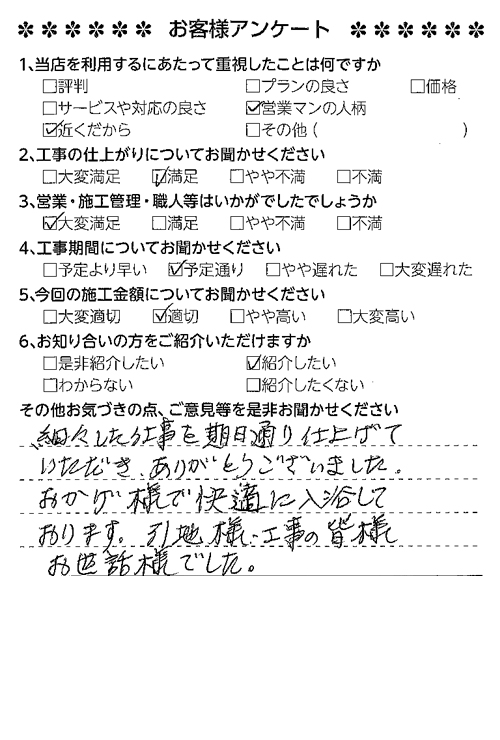 ✽✽✽✽✽✽ お客様アンケート ✽✽✽✽✽✽
1、当店を利用するにあたって重視したことは何ですか
□評判 □プランの良さ □価格
□サービスや対応の良さ ☑営業マンの人柄
☑近くだから □その他( )
2、工事の仕上がりについてお聞かせください
□大変満足 ☑満足 □やや不満 □不満
3、営業・施工管理・職人等はいかがでしたでしょうか
☑大変満足 □満足 □やや不満 □不満
4、工事期間についてお聞かせください
□予定より早い ☑予定通り □やや遅れた □大変遅れた
5、今回の施工金額についてお聞かせください
□大変適切 ☑適切 □やや高い □大変高い
6、お知り合いの方をご紹介いただけますか
□是非紹介したい ☑紹介したい
□わからない □紹介したくない
その他お気づきの点、ご意見等を是非お聞かせください
細々した工事を期日通り仕上げて
いただき、ありがとうございました。
おかげ様で快適に入浴して
おります。引地様、工事の皆様
お世話様でした。